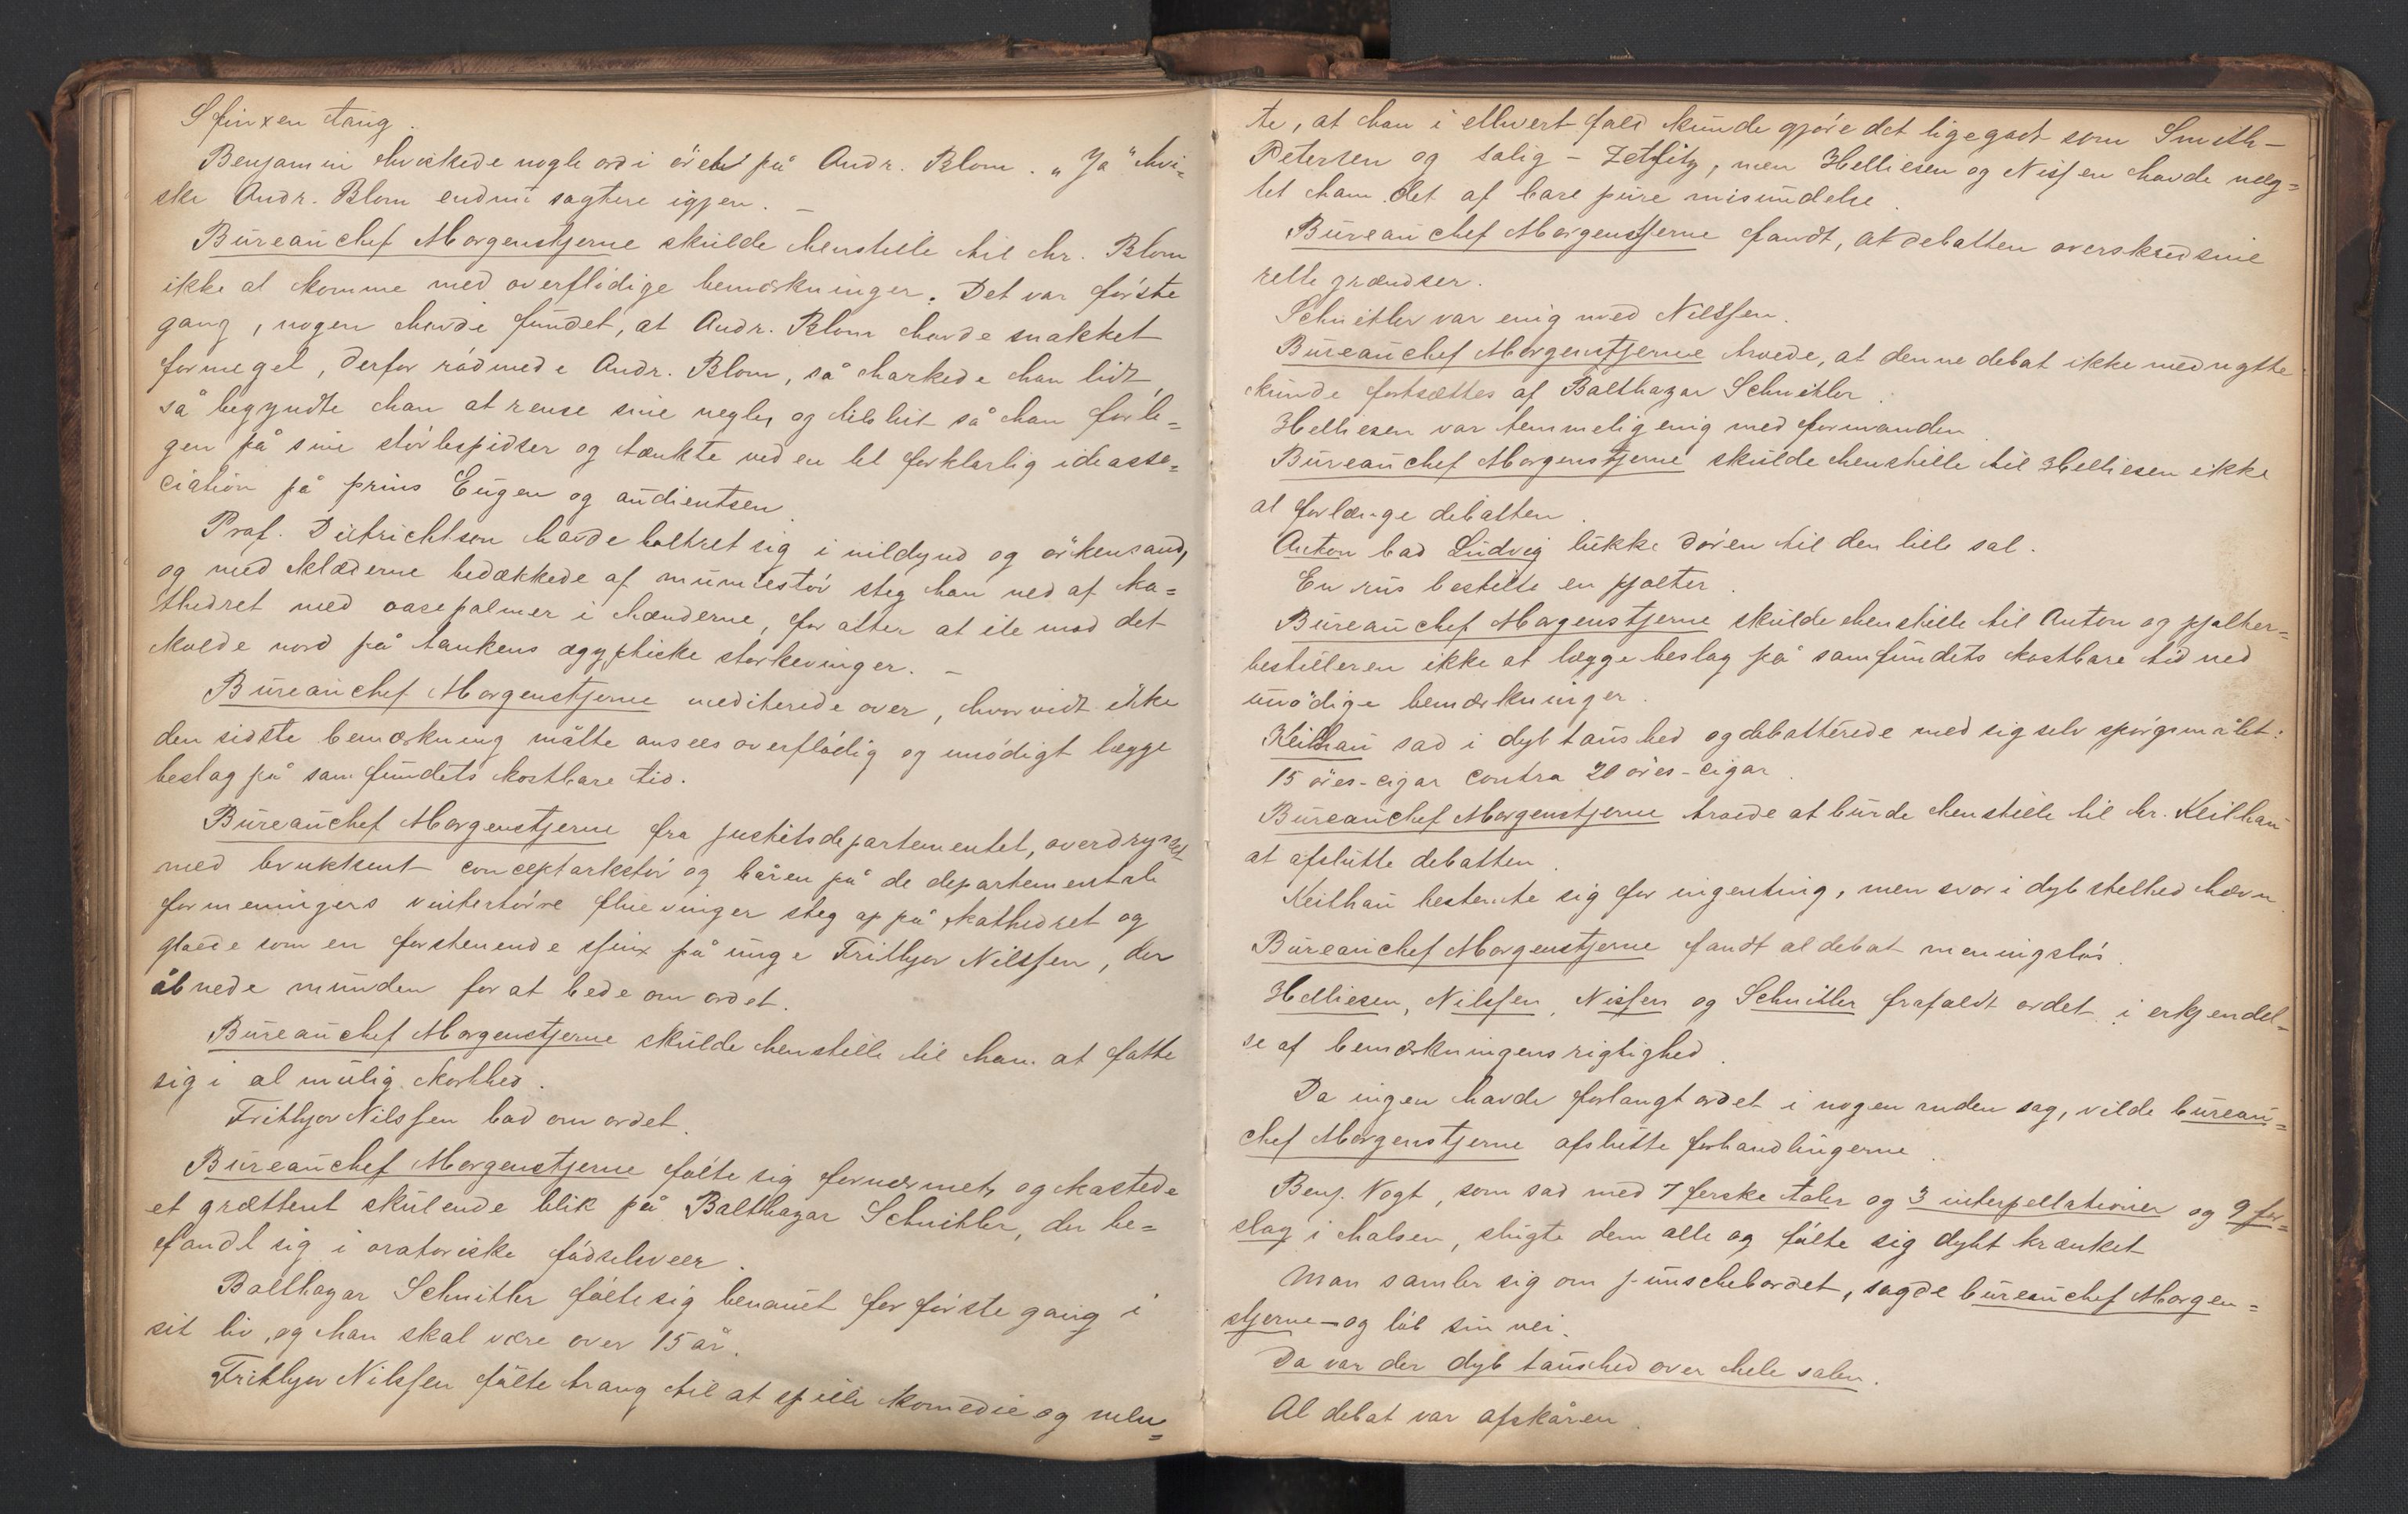 Sfinxen taug.
Benjamin hviskede nogle ord i öret på Andr. Blom. „Ja“ hvi=
ske Andr. Blom endnu sagtere igjen. —
Bureauchef Morgenstjerne skulde henstille til hr. Blom
ikke at komme med overflödige bemærkninger. Det var förste
gang, nogen havde fundet, at Andr. Blom havde snakket
formeget, derfor rödmede Andr. Blom, så harkede han lidt,
så begyndte han at rense sine negle, og tilslut så han forle=
gen på sine stövlespidser og tænkte ved en let forklarlig ideasso=
ciation på prins Eugen og audientsen.
Prof. Dietrichson havde boltret sig i nildynd og örkensand,
og med klæderne bedækkede af mumiestöv steg han ned af ka=
thedret med oasepalmer i hænderne, for atter at ile mod det
kolde nord på tankens ægyptiske storkevinger. —
Bureauchef Morgenstjerne mediterede over, hvorvidt ikke
den sidste bemærkning måtte ansees overflödig og unödigt lægge
beslag på samfundets kostbare tid.
Bureauchef Morgenstjerne fra justitsdepartementet, overdrysset
med brukkent conceptarkstöv og båren på de departementale
formeningers vintertörre fluevinger steg op på kathedret og
gloede som en forstenende sfinx på unge Frithjov Nilssen, der
åbnede munden for at bede om ordet.
Bureauchef Morgenstjerne skulde henstille til ham at fatte
sig i al mulig korthed.
Frithjov Nilssen bad om ordet.
Bureauchef Morgenstjerne fölte sig fornærmet, og kastede
et grættent skulende blik på Balthazar Schnitler, der be=
fandt sig i oratoriske födselsveer.
Balthazar Schnitler fölte sig benauet for förste gang i
sit liv, og han skal være over 15 år.
Frithjov Nilssen fölte trang til at spille komedie og men=
te, at han i ethvert fald kunde gjöre det ligegodt som Smith-
Petersen og salig - Zetlitz, men Helliesen og Nissen havde næg=
tet ham det af bare pure misundelse.
Bureauchef Morgenstjerne fandt, at debatten overskred sine
rette grændser.
Schnitler var enig med Nilssen.
Bureauchef Morgenstjerne troede, at denne debat ikke med nytte
kunde fortsættes af Balthazar Schnitler.
Helliesen var temmelig enig med formanden.
Bureauchef Morgenstjerne skulde henstille til Helliesen ikke
at forlænge debatten.
Anton bad Ludvig lukke dören til den lille sal.
En rus bestilte en pjolter.
Bureauchef Morgenstjerne skulde henstille til Anton og pjolter=
bestilleren ikke at lægge beslag på samfundets kostbare tid ved
unödige bemærkninger.
Keilhau sad i dyb taushed og debatterede med sig selv spörgsmålet:
15 öres-cigar contra 20 öres-cigar.
Bureauchef Morgenstjerne troede at burde henstille til hr. Keilhau
at afslutte debatten.
Keilhau bestemte sig for ingenting, men svor i dyb stilhed hævn.
Bureauchef Morgenstjerne fandt al debat meningslös.
Helliesen, Nilssen, Nissen og Schnitler frafaldt ordet i erkjendel-
se af bemærkningens rigtighed.
Da ingen havde forlangt ordet i nogen anden sag, vilde bureau=
chef Morgenstjerne afslutte forhandlingerne.
Benj. Vogt, som sad med 7 ferske taler og 3 interpellationer og 9 for=
slag i halsen, slugte dem alle og fölte sig dybt krænket
Man samler sig om punschebordet, sagde bureauchef Morgen=
stjerne — og löb sin vei.
Da var der dyb taushed over hele salen.
Al debat var afskåren.